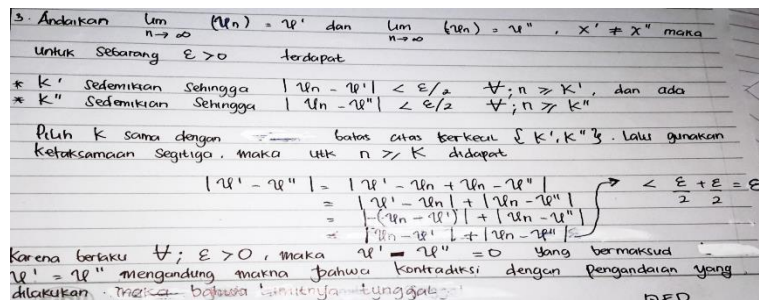 3. Andaikan lim n→∞ (xn) = x' dan lim n→∞ (xn) = x", x' ≠ x" maka
untuk sebarang ε > 0 terdapat
* K' sedemikian sehingga | xn - x'| < ε/2 ∀; n ≥ K', dan ada
* K" sedemikian sehingga | xn - x"| < ε/2 ∀; n ≥ K"
Pilih K sama dengan batas atas terkecil { K', K" }. Lalu gunakan
ketaksamaan segitiga, maka utk n ≥ K didapat
| x' - x" | = | x' - xn + xn - x" |
= | x' - xn | + | xn - x" |
= |-(xn - x')| + | xn - x" |
= | xn - x' | + | xn - x" | < ε/2 + ε/2 = ε
Karena berlaku ∀; ε > 0, maka x' - x" = 0 yang bermaksud
x' = x" mengandung makna bahwa kontradiksi dengan pengandaian yang
dilakukan. maka bahwa limitnya tunggal.
QED